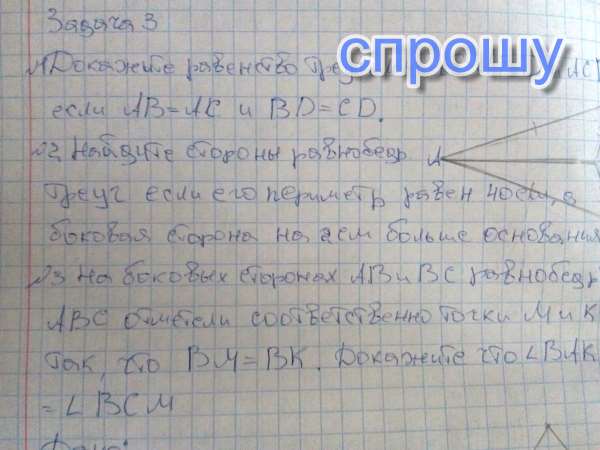 Задача 3
спрошу
№1 Докажите равенство треу АС
если АВ=АС и ВD=CD.
№2 Найдите стороны равнобедр А
треуг если его периметр равен 40см, а
боковая сторона на 2см больше основания
№3 На боковых сторонах АВ и ВС равнобедр
АВС отметели соответственно точки М и К
так, что ВМ=ВК. Докажите что ∠ВАК
= ∠ВСМ
Дано: